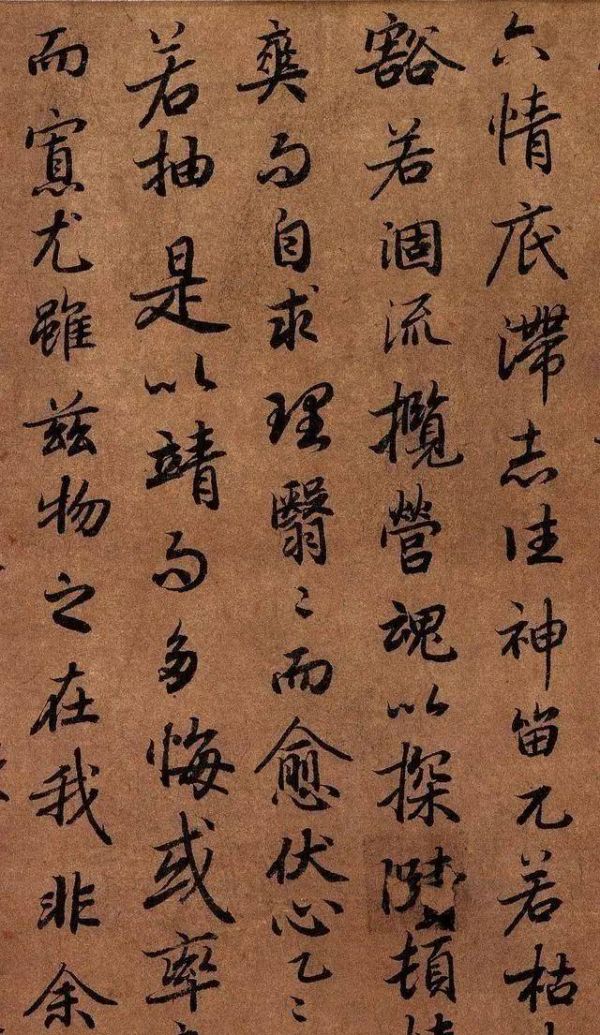 六情底滯志往神留兀若枯
豁若涸流攬營魂以探頓
爽而自求理翳〻而愈伏心乙〻
若抽是以靖而多悔或率
而寡尤雖茲物之在我非余